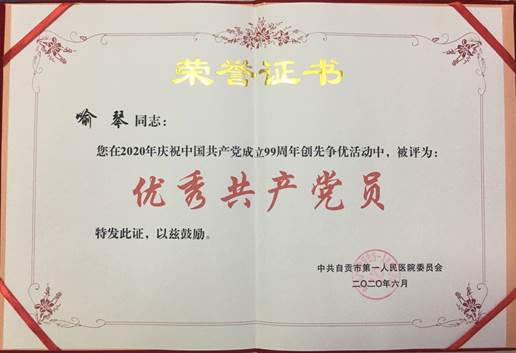 荣誉证书
喻琴同志：
您在2020年庆祝中国共产党成立99周年创先争优活动中，被评为：
优秀共产党员
特发此证，以兹鼓励。
中共自贡市第一人民医院委员会
二〇二〇年六月